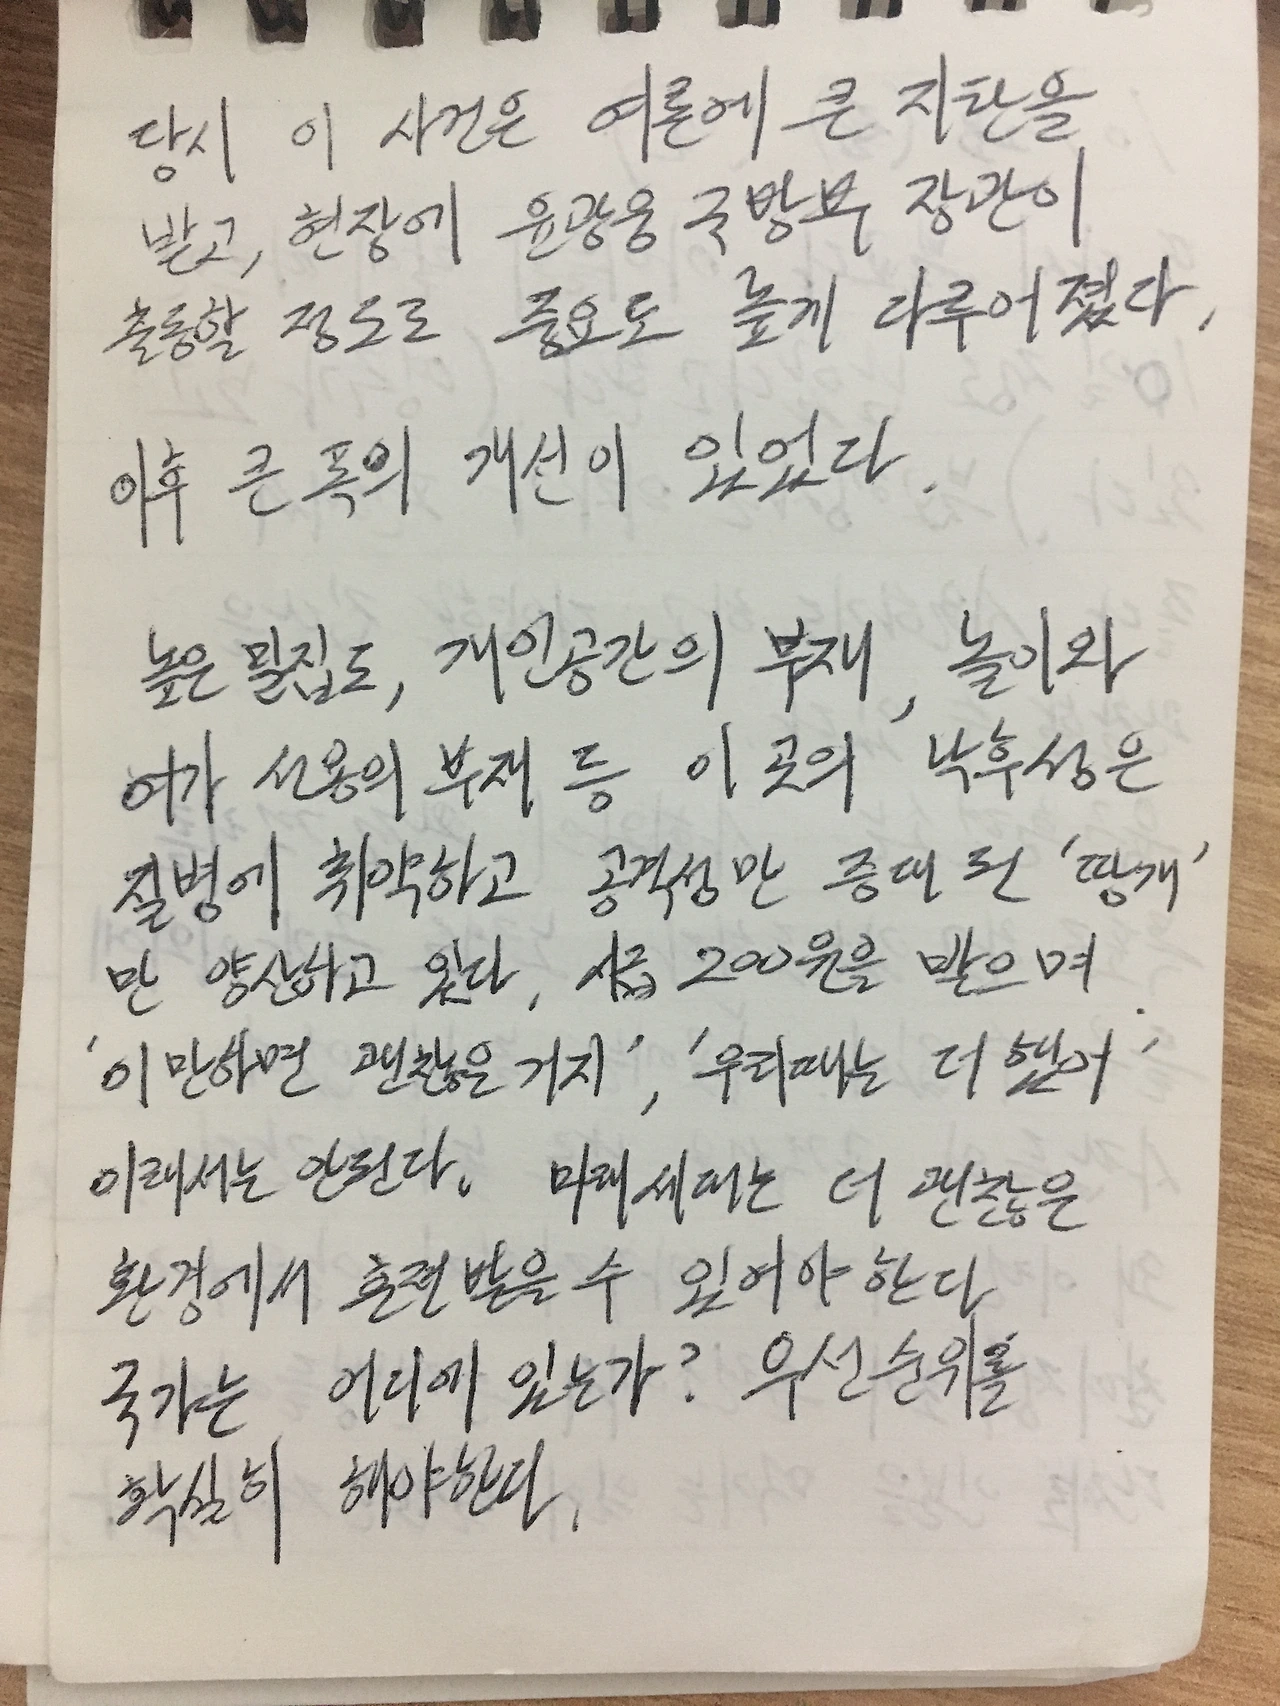 당시 이 사건은 여론에 큰 지탄을
받고, 현장에 윤광웅 국방부 장관이
출동할 정도로 중요도 높게 다루어졌다.
이후 큰 폭의 개선이 있었다.
높은 밀집도, 개인공간의 부재, 놀이와
여가 선용의 부재 등 이 곳의 낙후성은
질병에 취약하고 공격성만 증대 된 '땅개'
만 양산하고 있다. 시급 200원을 받으며
'이만하면 괜찮은 거지', '우리때는 더 했어'
이래서는 안된다. 미래세대는 더 괜찮은
환경에서 훈련 받을 수 있어야 한다
국가는 어디에 있는가? 우선순위를
확실히 해야한다.